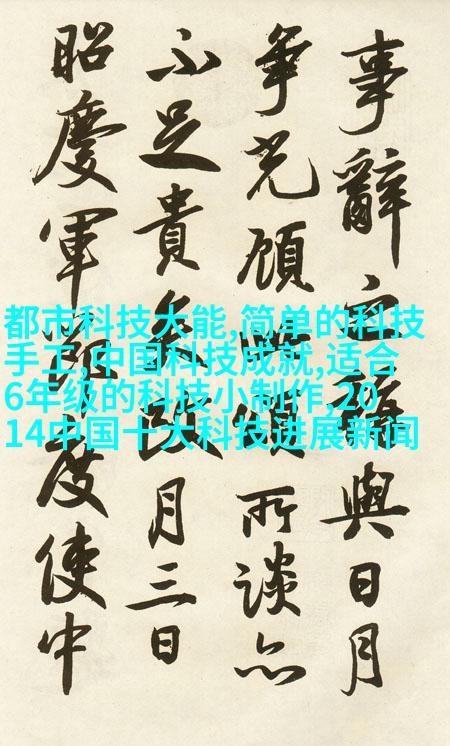 都市科技大能,简单的科技
手工,中国科技成就,适合
6年级的科技小制作,20
14中国十大科技进展新闻
事辭與日月
爭光顧所談亦
不足貴月三日
昭慶軍度使中